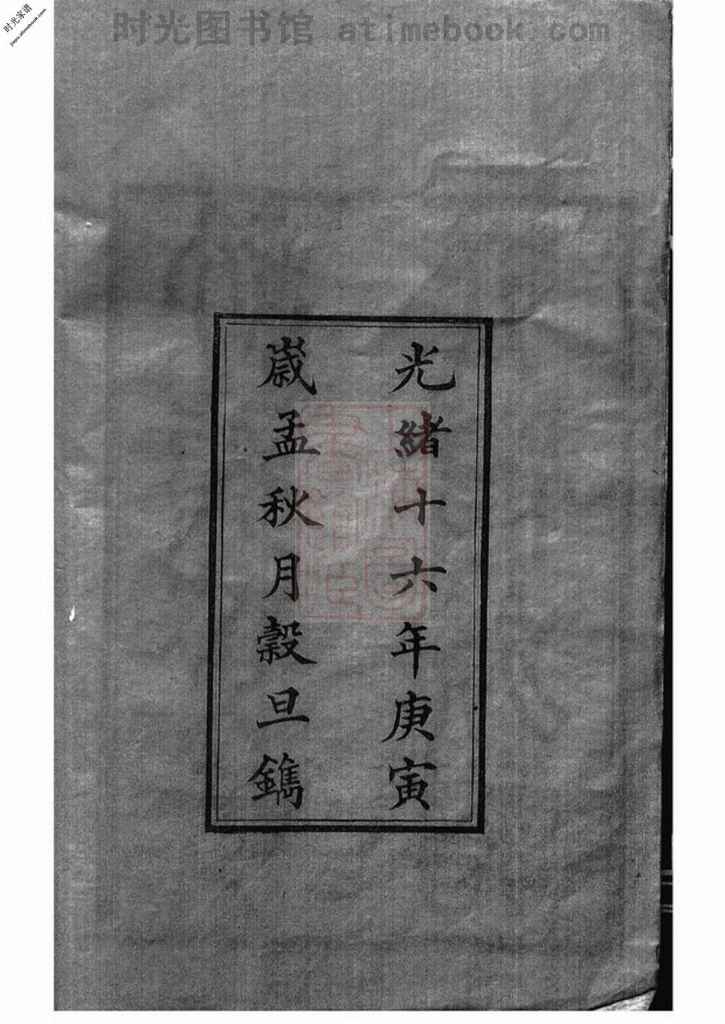 时光图书馆 atimebook.com
时光家谱
光緒十六年庚寅
歲孟秋月穀旦鐫